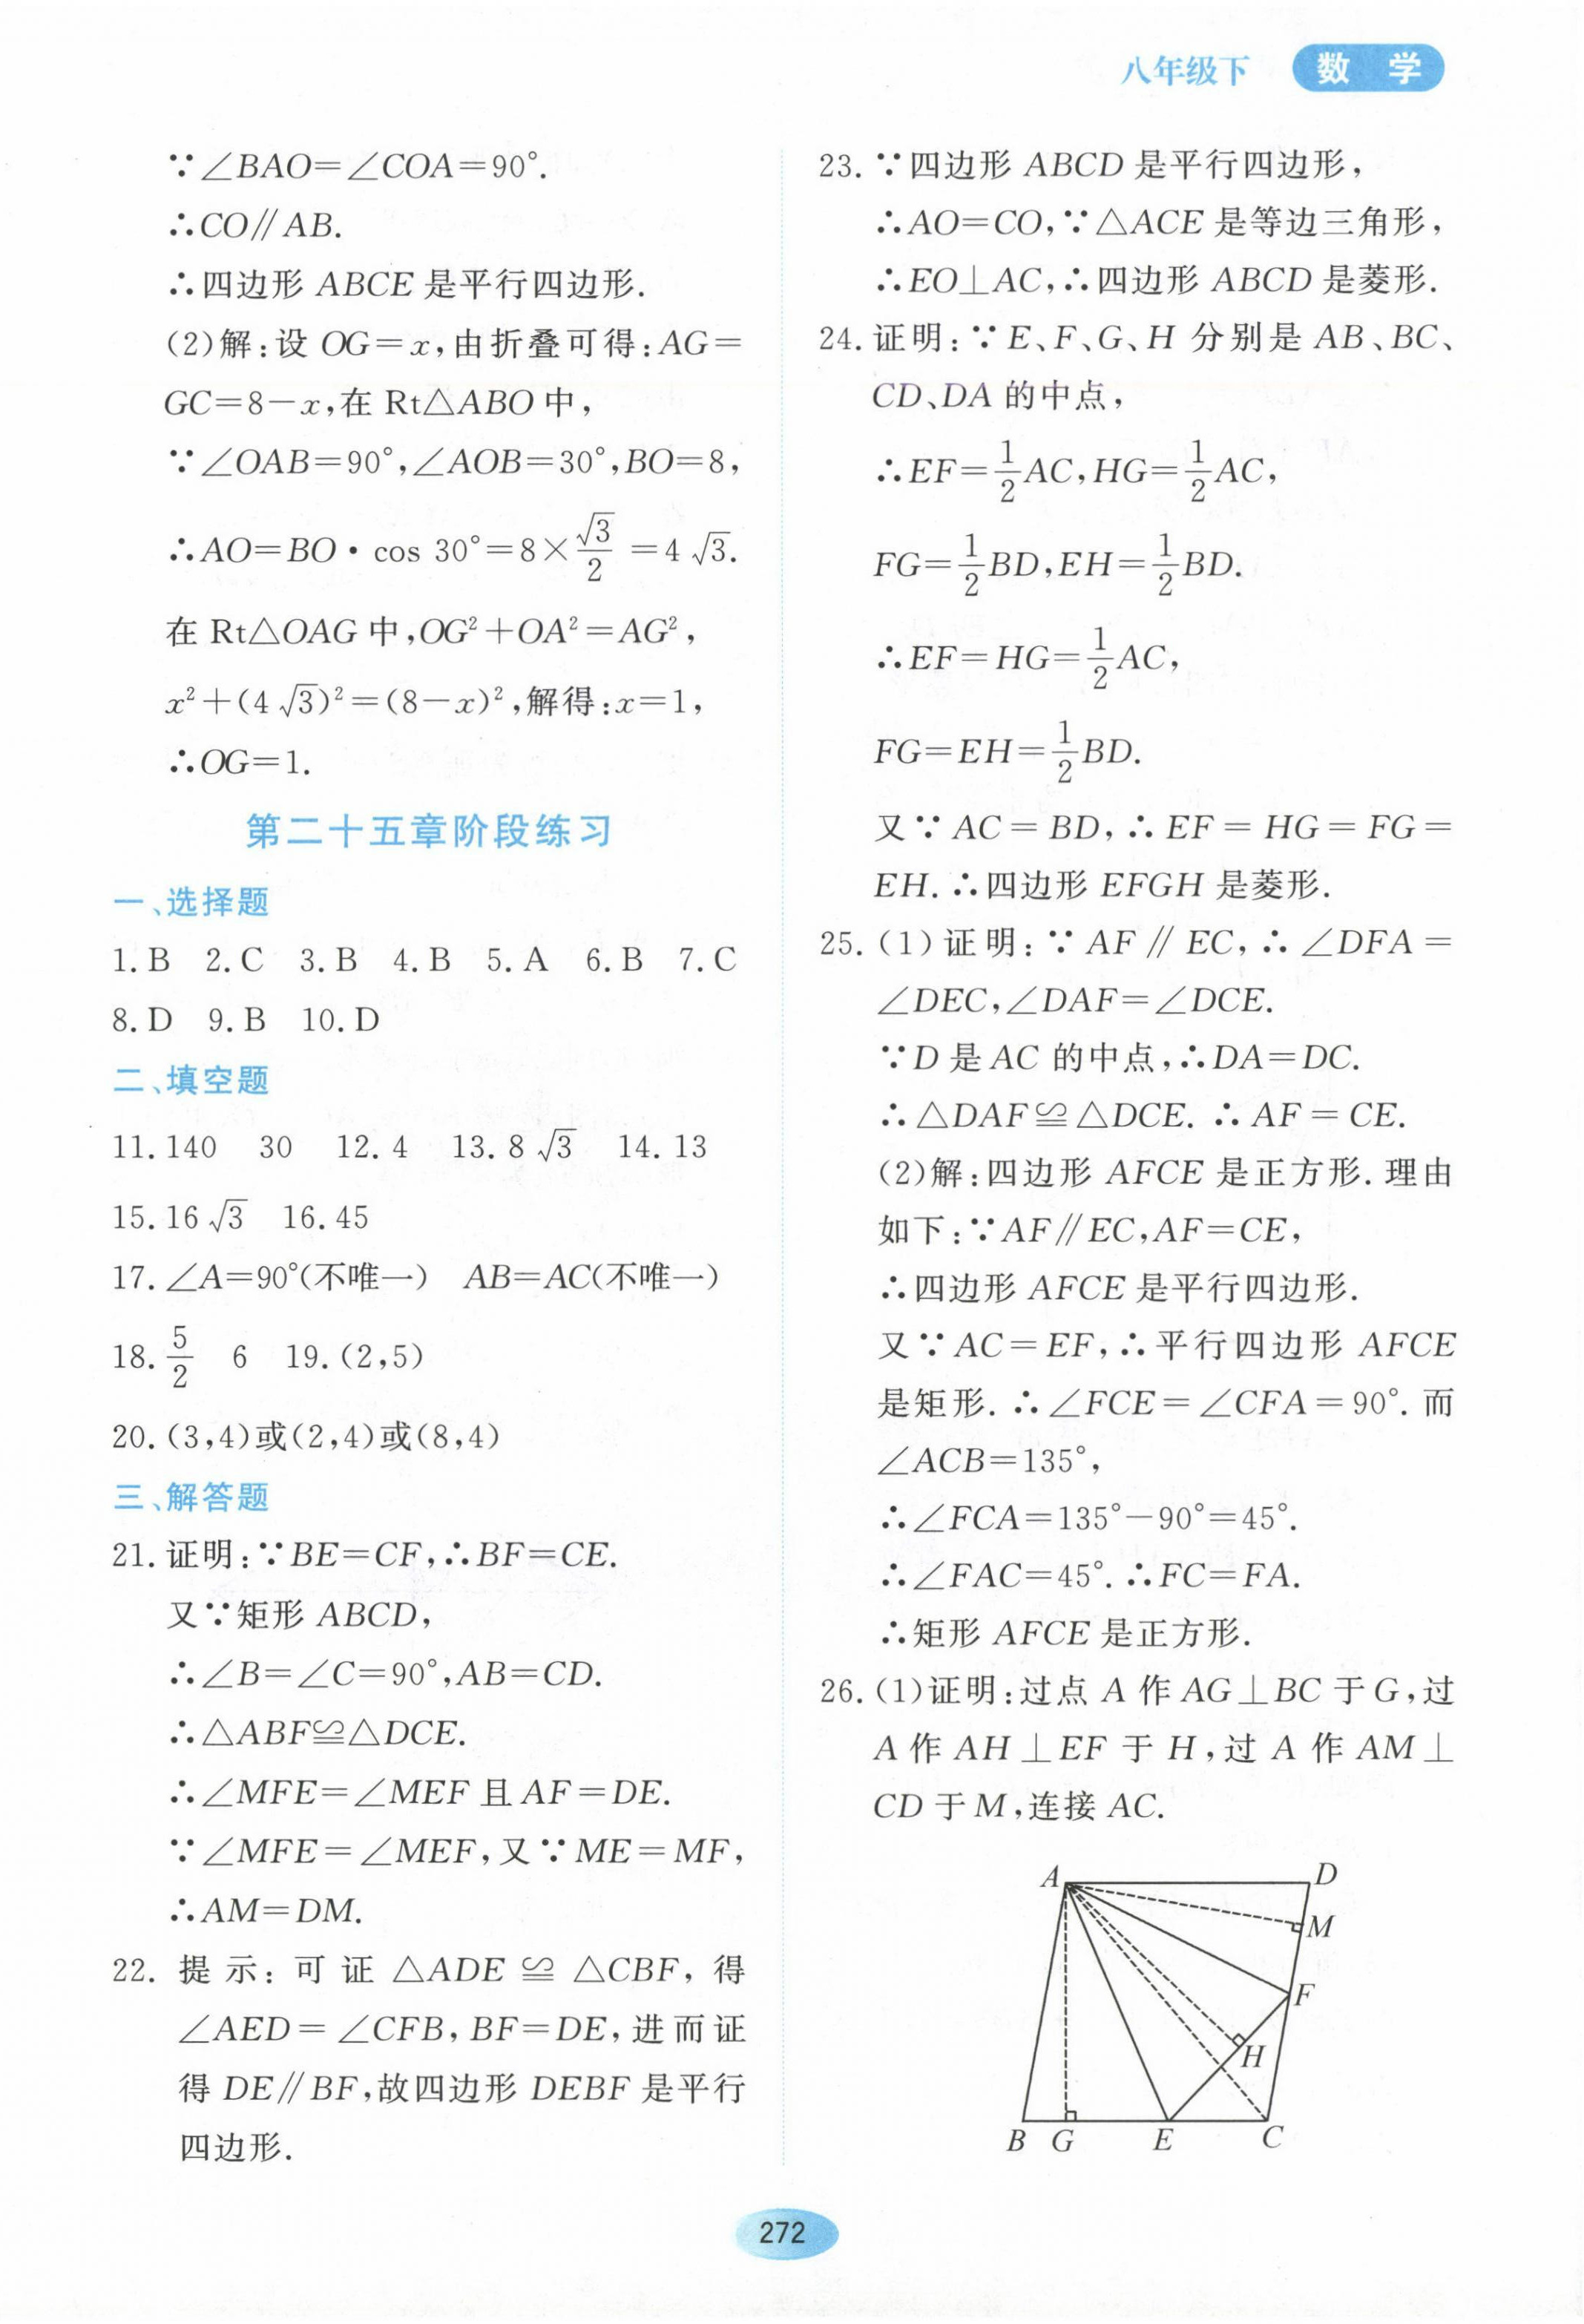 八年级下 数 学
∵∠BAO=∠COA=90°.
∴CO∥AB.
∴四边形 ABCE 是平行四边形.
(2)解:设 OG=x,由折叠可得:AG=
GC=8-x,在 Rt△ABO 中,
∵∠OAB=90°,∠AOB=30°,BO=8,
∴AO=BO·cos 30°=8×√3/2=4√3.
在 Rt△OAG 中,OG²+OA²=AG²,
x²+(4√3)²=(8-x)²,解得:x=1,
∴OG=1.
第二十五章阶段练习
一、选择题
1.B 2.C 3.B 4.B 5.A 6.B 7.C
8.D 9.B 10.D
二、填空题
11.140 30 12.4 13.8√3 14.13
15.16√3 16.45
17.∠A=90°(不唯一) AB=AC(不唯一)
18.5/2 6 19.(2,5)
20.(3,4)或(2,4)或(8,4)
三、解答题
21.证明:∵BE=CF,∴BF=CE.
又∵矩形 ABCD,
∴∠B=∠C=90°,AB=CD.
∴△ABF≌△DCE.
∴∠MFE=∠MEF 且 AF=DE.
∵∠MFE=∠MEF,又∵ME=MF,
∴AM=DM.
22.提示:可证△ADE≌△CBF,得
∠AED=∠CFB,BF=DE,进而证
得 DE∥BF,故四边形 DEBF 是平行
四边形.
23.∵四边形 ABCD 是平行四边形,
∴AO=CO,∵△ACE 是等边三角形,
∴EO⊥AC,∴四边形 ABCD 是菱形.
24.证明:∵E、F、G、H 分别是 AB、BC、
CD、DA 的中点,
∴EF=1/2AC,HG=1/2AC,
FG=1/2BD,EH=1/2BD.
∴EF=HG=1/2AC,
FG=EH=1/2BD.
又∵AC=BD,∴EF=HG=FG=
EH.∴四边形 EFGH 是菱形.
25.(1)证明:∵AF∥EC,∴∠DFA=
∠DEC,∠DAF=∠DCE.
∵D 是 AC 的中点,∴DA=DC.
∴△DAF≌△DCE.∴AF=CE.
(2)解:四边形 AFCE 是正方形.理由
如下:∵AF∥EC,AF=CE,
∴四边形 AFCE 是平行四边形.
又∵AC=EF,∴平行四边形 AFCE
是矩形.∴∠FCE=∠CFA=90°.而
∠ACB=135°,
∴∠FCA=135°-90°=45°.
∴∠FAC=45°.∴FC=FA.
∴矩形 AFCE 是正方形.
26.(1)证明:过点 A 作 AG⊥BC 于 G,过
A 作 AH⊥EF 于 H,过 A 作 AM⊥
CD 于 M,连接 AC.
A D
M
F
H
B G E C
272